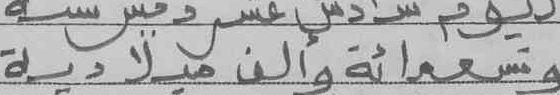 ديوم سادس عشر وخمس سنة
وتسعمائة وألف ميلادية